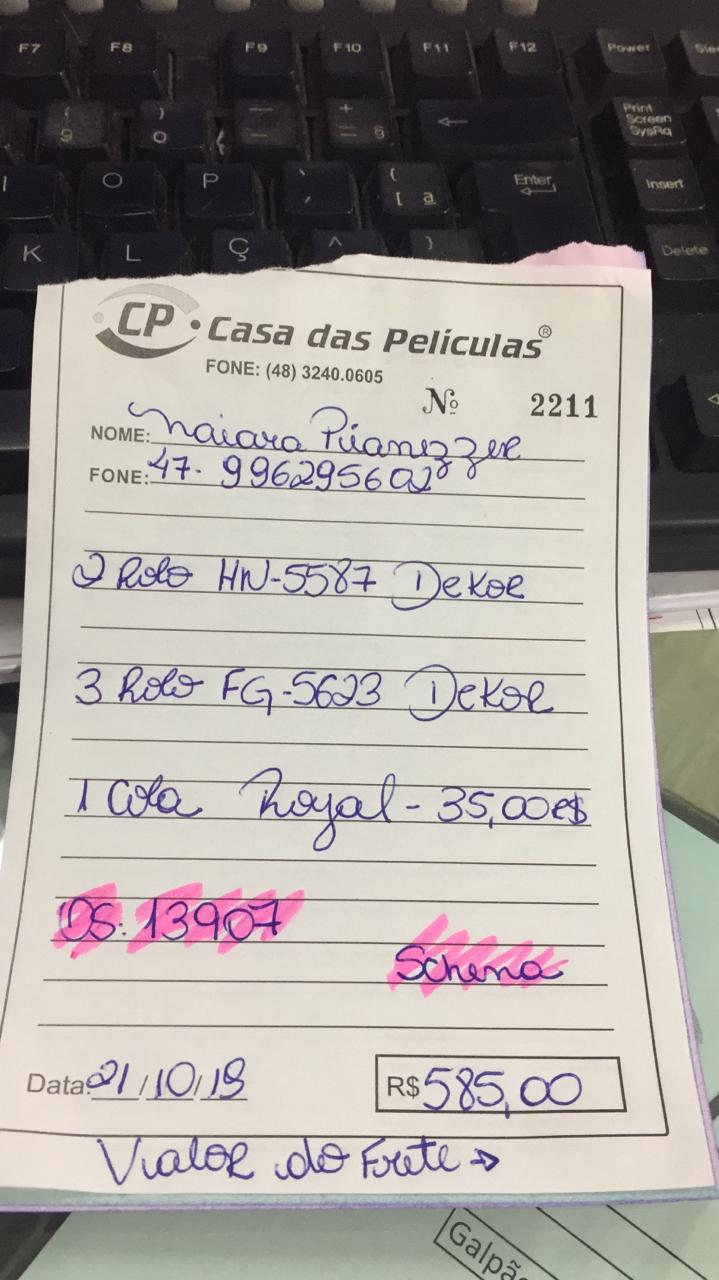 F7 F8 F9 F10 F11 F12 Power
Print Screen SysRq
O P Enter Insert
K L Ç Delete
CP • Casa das Películas®
FONE: (48) 3240.0605
Nº 2211
NOME: Naiara
FONE: 47. 996295602
2 Rolo HN-5587 Dekor
3 Rolo FG-5623 Dekor
1 Cola Royal - 35,00R$
OS. 13907
Schena
Data: 21/10/19 R$ 585,00
Valor do Frete →
Galpã